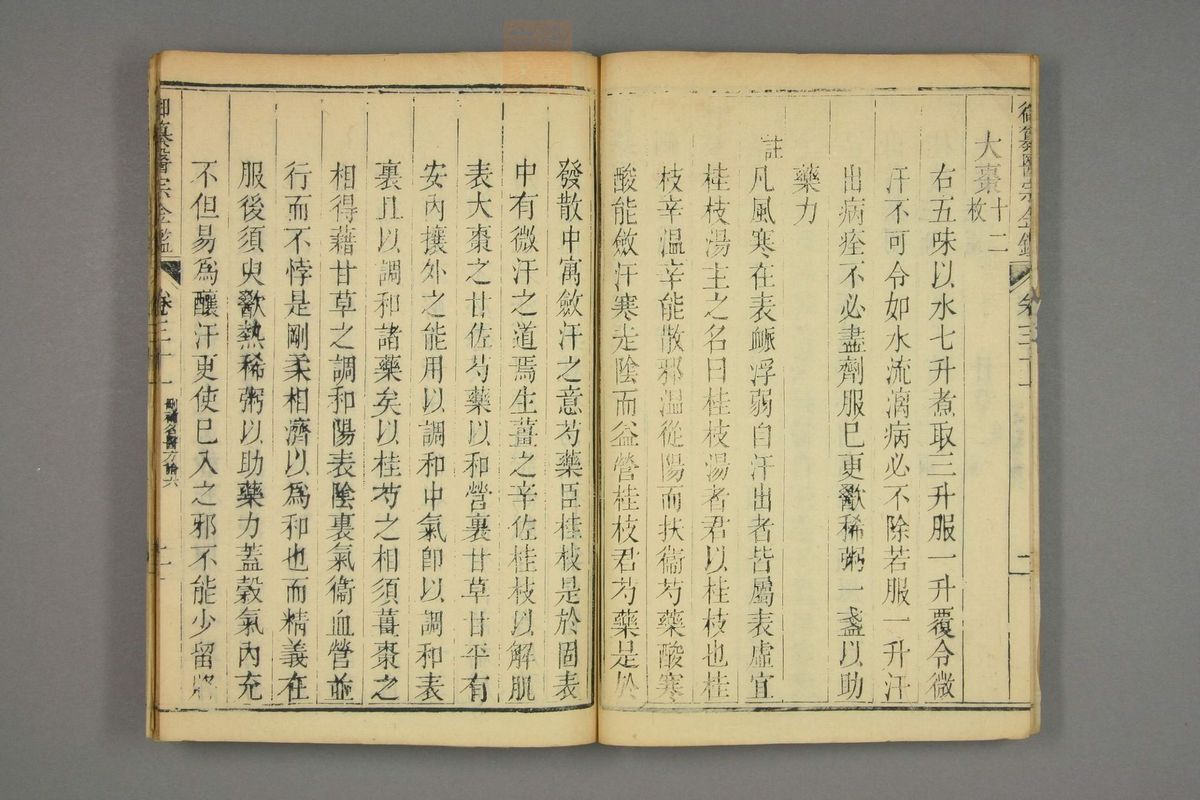 御纂醫宗金鑑 卷三十一
大棗十二枚
右五味以水七升煮取三升服一升覆令微
汗不可令如水流漓病必不除若服一升汗
出病痊不必盡劑服已更歠稀粥一盞以助
藥力
註
凡風寒在表䘑浮弱自汗出者皆屬表虛宜
桂枝湯主之名曰桂枝湯者君以桂枝也桂
枝辛溫辛能散邪溫從陽而扶衞芍藥酸寒
酸能斂汗寒走陰而益營桂枝君芍藥是於
發散中寓斂汗之意芍藥臣桂枝是於固表
中有微汗之道焉生薑之辛佐桂枝以解肌
表大棗之甘佐芍藥以和營裏甘草甘平有
安內攘外之能用以調和中氣卽以調和表
裏且以調和諸藥矣以桂芍之相須薑棗之
相得藉甘草之調和陽表陰裏氣衞血營並
行而不悖是剛柔相濟以爲和也而精義在
服後須臾歠熱稀粥以助藥力蓋榖氣內充
不但易爲釀汗更使已入之邪不能少留將
御纂醫宗金鑑 卷三十一 刪補名醫方論六